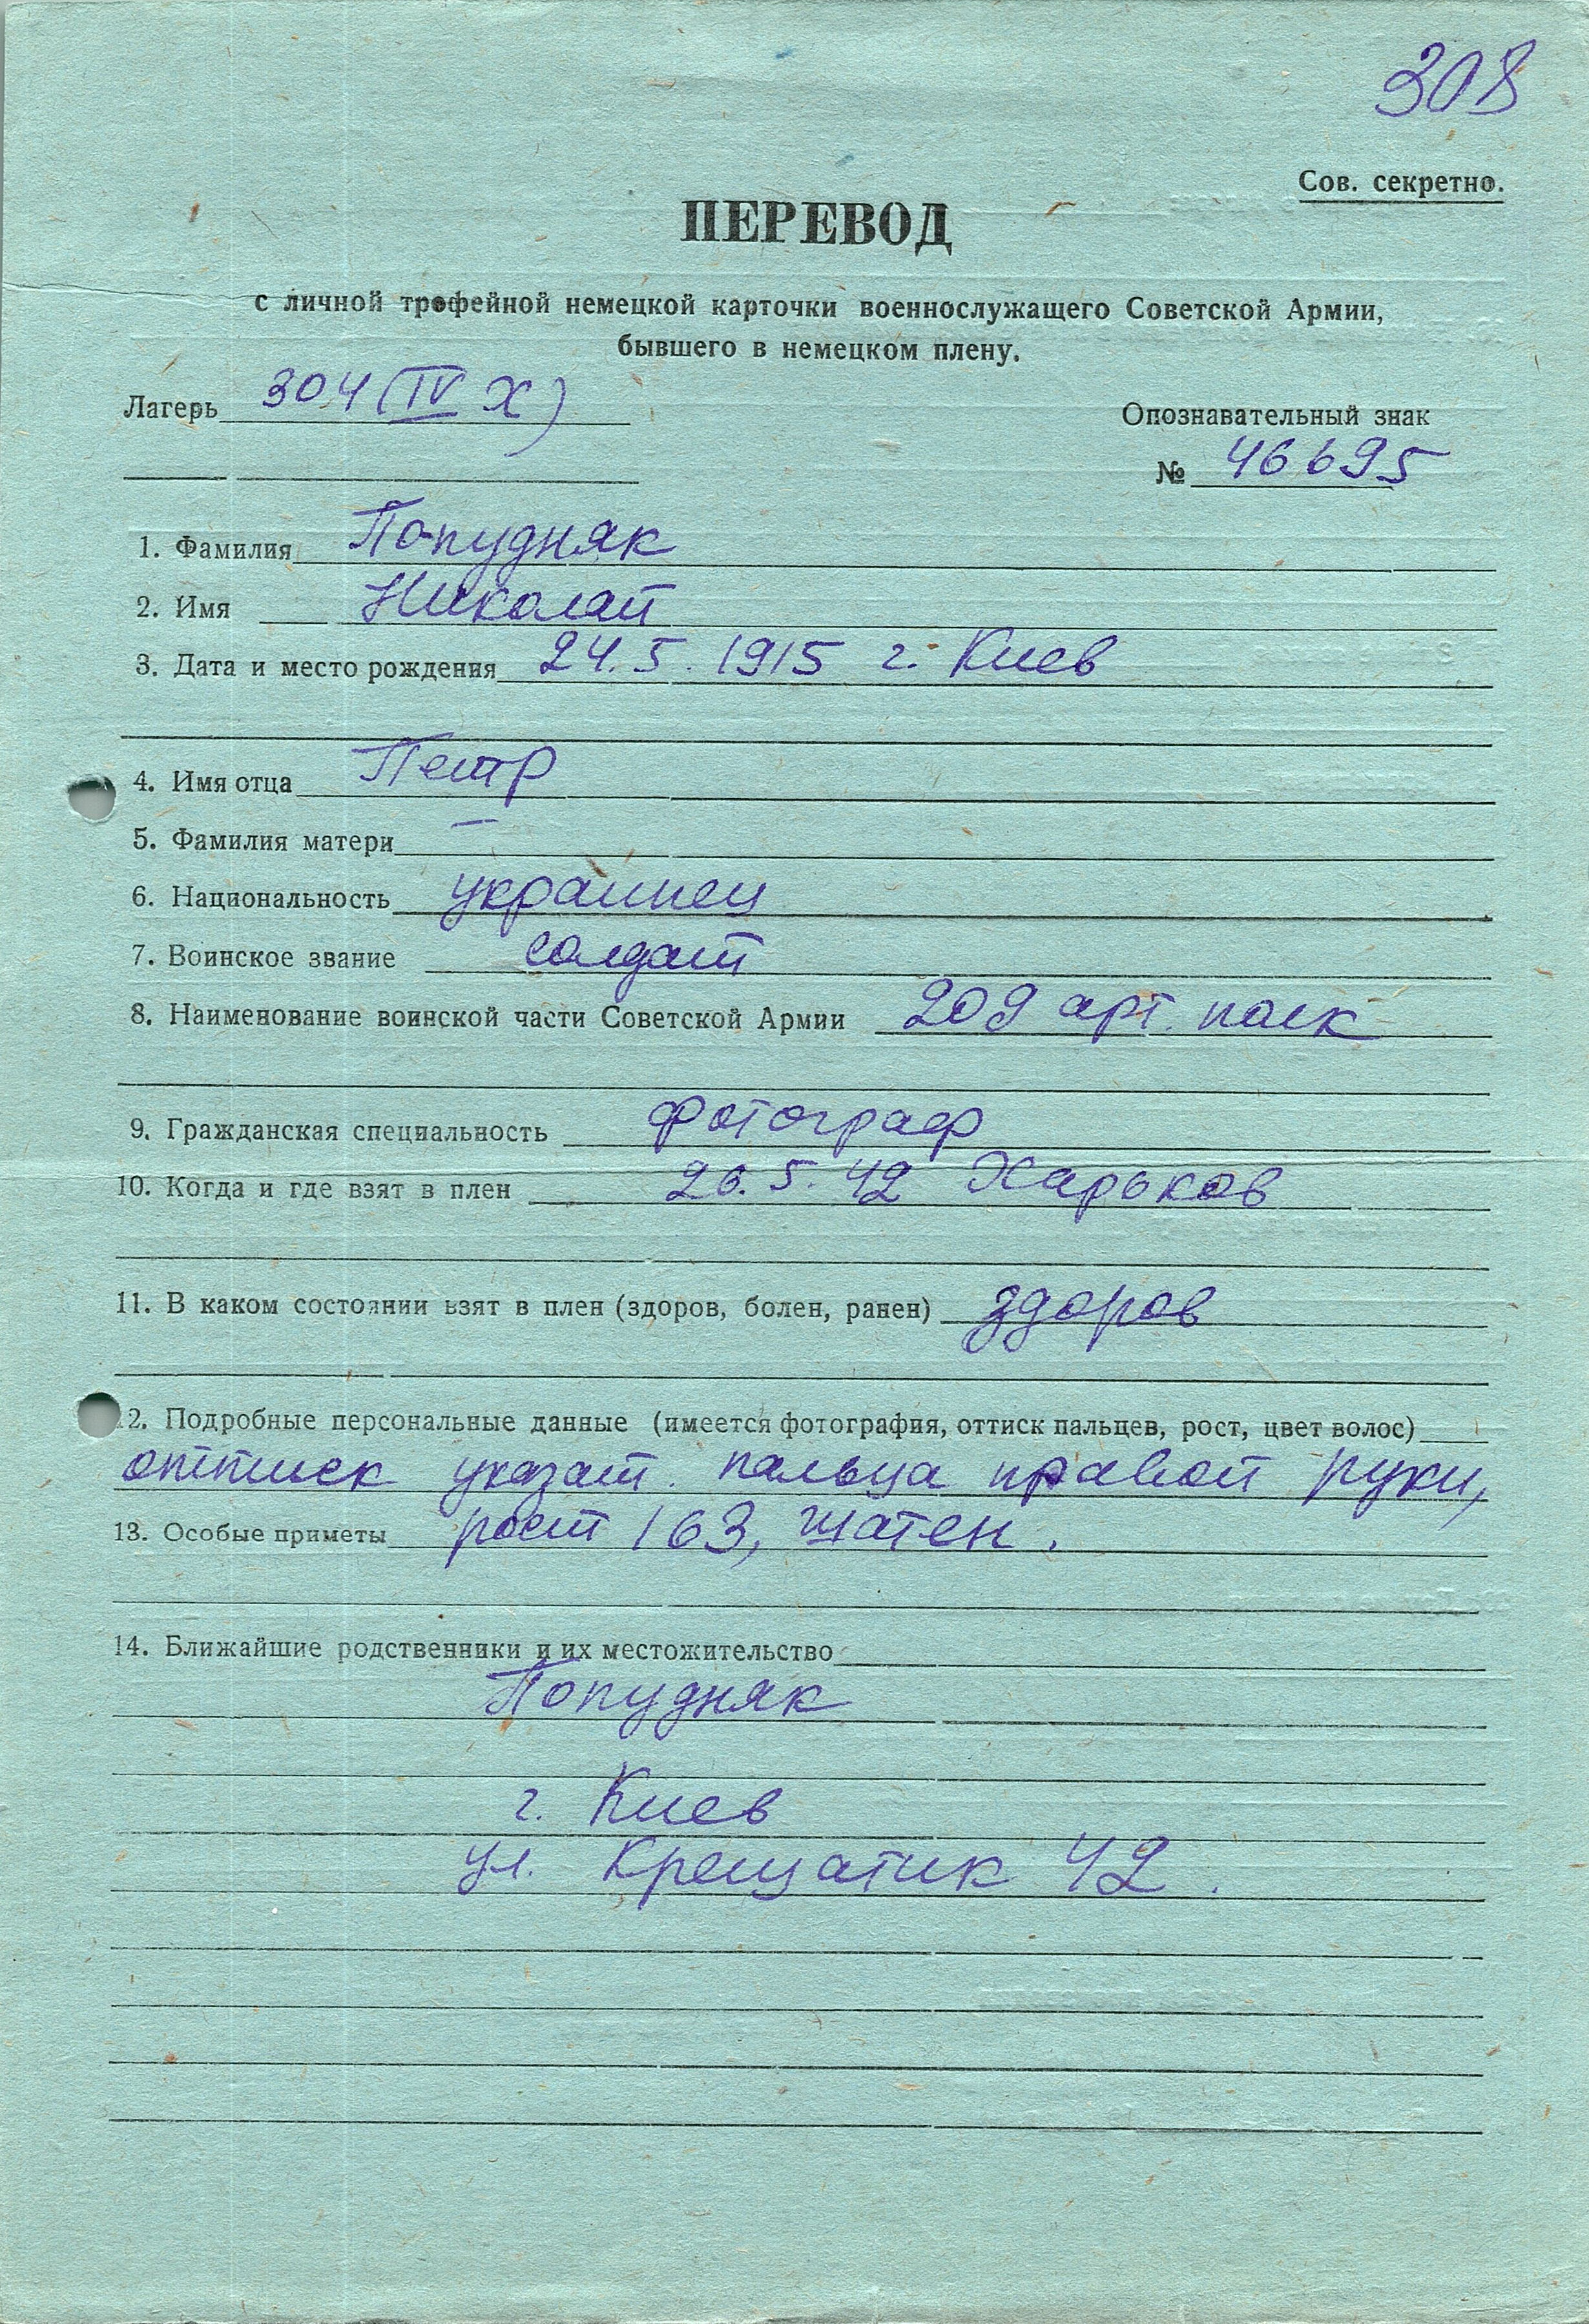 308
Сов. секретно.
ПЕРЕВОД
с личной трофейной немецкой карточки военнослужащего Советской Армии,
бывшего в немецком плену.
Лагерь 304 (IV Х)
Опознавательный знак
№ 46695
1. Фамилия Попудняк
2. Имя Николай
3. Дата и место рождения 24.5.1915 г. Киев
4. Имя отца Петр
5. Фамилия матери —
6. Национальность украинец
7. Воинское звание солдат
8. Наименование воинской части Советской Армии 209 арт. полк
9. Гражданская специальность фотограф
10. Когда и где взят в плен 26.5.42 Харьков
11. В каком состоянии взят в плен (здоров, болен, ранен) здоров
2. Подробные персональные данные (имеется фотография, оттиск пальцев, рост, цвет волос)
оттиск указат. пальца правой руки,
13. Особые приметы рост 163, шатен.
14. Ближайшие родственники и их местожительство
Попудняк
г. Киев
ул. Крещатик 42.